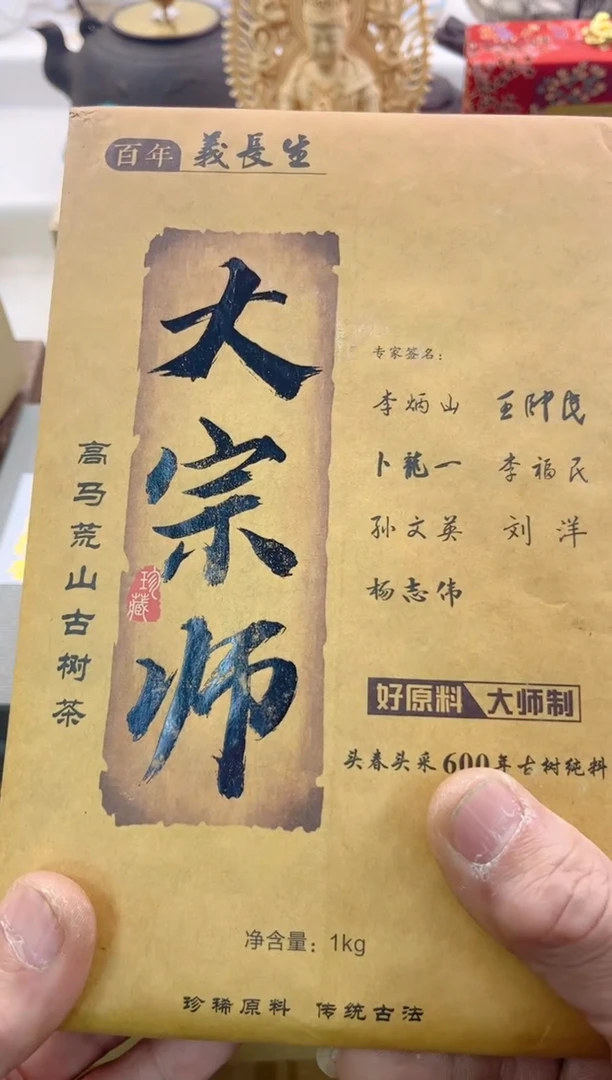 百年 義長生
大宗师
高马荒山古树茶
珍藏
专家签名：
李炳山 王帅民
卜龍一 李福民
孙文英 刘洋
杨志伟
好原料 大师制
头春头采600年古树纯料
净含量：1kg
珍稀原料 传统古法